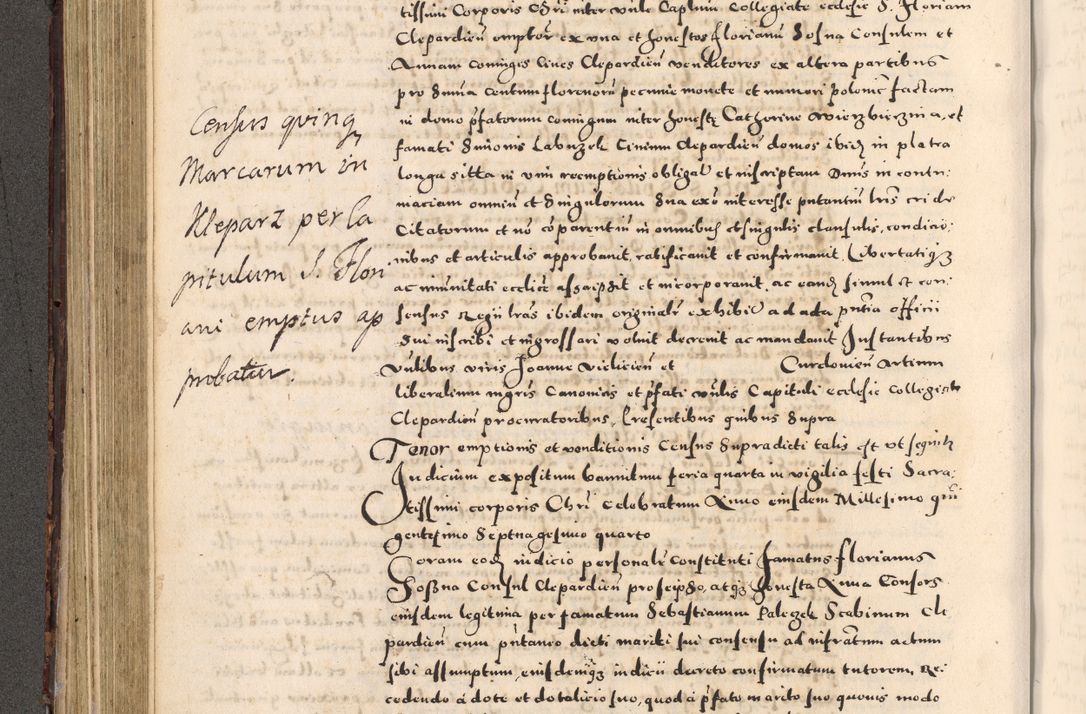 tissimi Corporis Chri inter venle Caplum Collegiate ecclesie S. Floriani
Clepardien emptor ex una et honestos Florianu Sosna Consulem et
Annam coniuges Cives Clepardien venditores ex altera partibus
pro summa centum florenoru pecunie monete et numeri polonic factam
in domo pfatorum coniugum inter honeste Catherine Wierzbieczina, et
famati Simonis Labuzek Civium Clepardien domos ibide in platea
longa sitta in vim reemptionis obligat et inscriptam Omnis in contu:
maciam omniu et singulorum sua exo interesse putantiu lris eri de
Citatorum et no coparentiu in omnibus et singulis clausulis, condicio:
nibus et articulis approbavit, ratificavit et confirmavit. Libertatiqz
ac imunitati ecclice asscripsit et incorporavit, ac eande simul et con:
sensus Regii lras ibidem originalr exhibit ad acta pntia officii
sui inscribi et ingrossari voluit decrevit ac mandavit Instantibus
vnlibus viris Joanne Vielicien et Curelovien Artium
liberalium mgris Canonicis et pfati vnlis Capituli ecclesie Collegiate
Clepardien procuratoribus, Presentibus quibus supra
Tenor emptionis et venditionis Census supradicti talis est ut sequitr
Judicium expositum bannitum feria quarta in vigilia festi Sacra:
tissimi corporis Chri celebratum Anno eiusdem Millesimo quin
gentesimo Septuagesimo quarto
Coram eode iudicio personalr Constituti famatus Florianus
Sossna Consul Clepardien pro se ipso, atqz honesta Anna Consors
eiusdem legitima per famatum Sebastianum Paleczek Scabinum Cle
pardien cum pntaneo dicti mariti sui consensu ad infratum actum
sibi assumptum, eiusdemqz iudicii decreto confirmatum tutorem, Re:
cedendo a dote et dotalicio suo, quod a pfato marito suo quovis modo
Census quinq
Marcarum in
Kleparz per Ca
pitulum S. Flori
ani emptus ap
probatur.